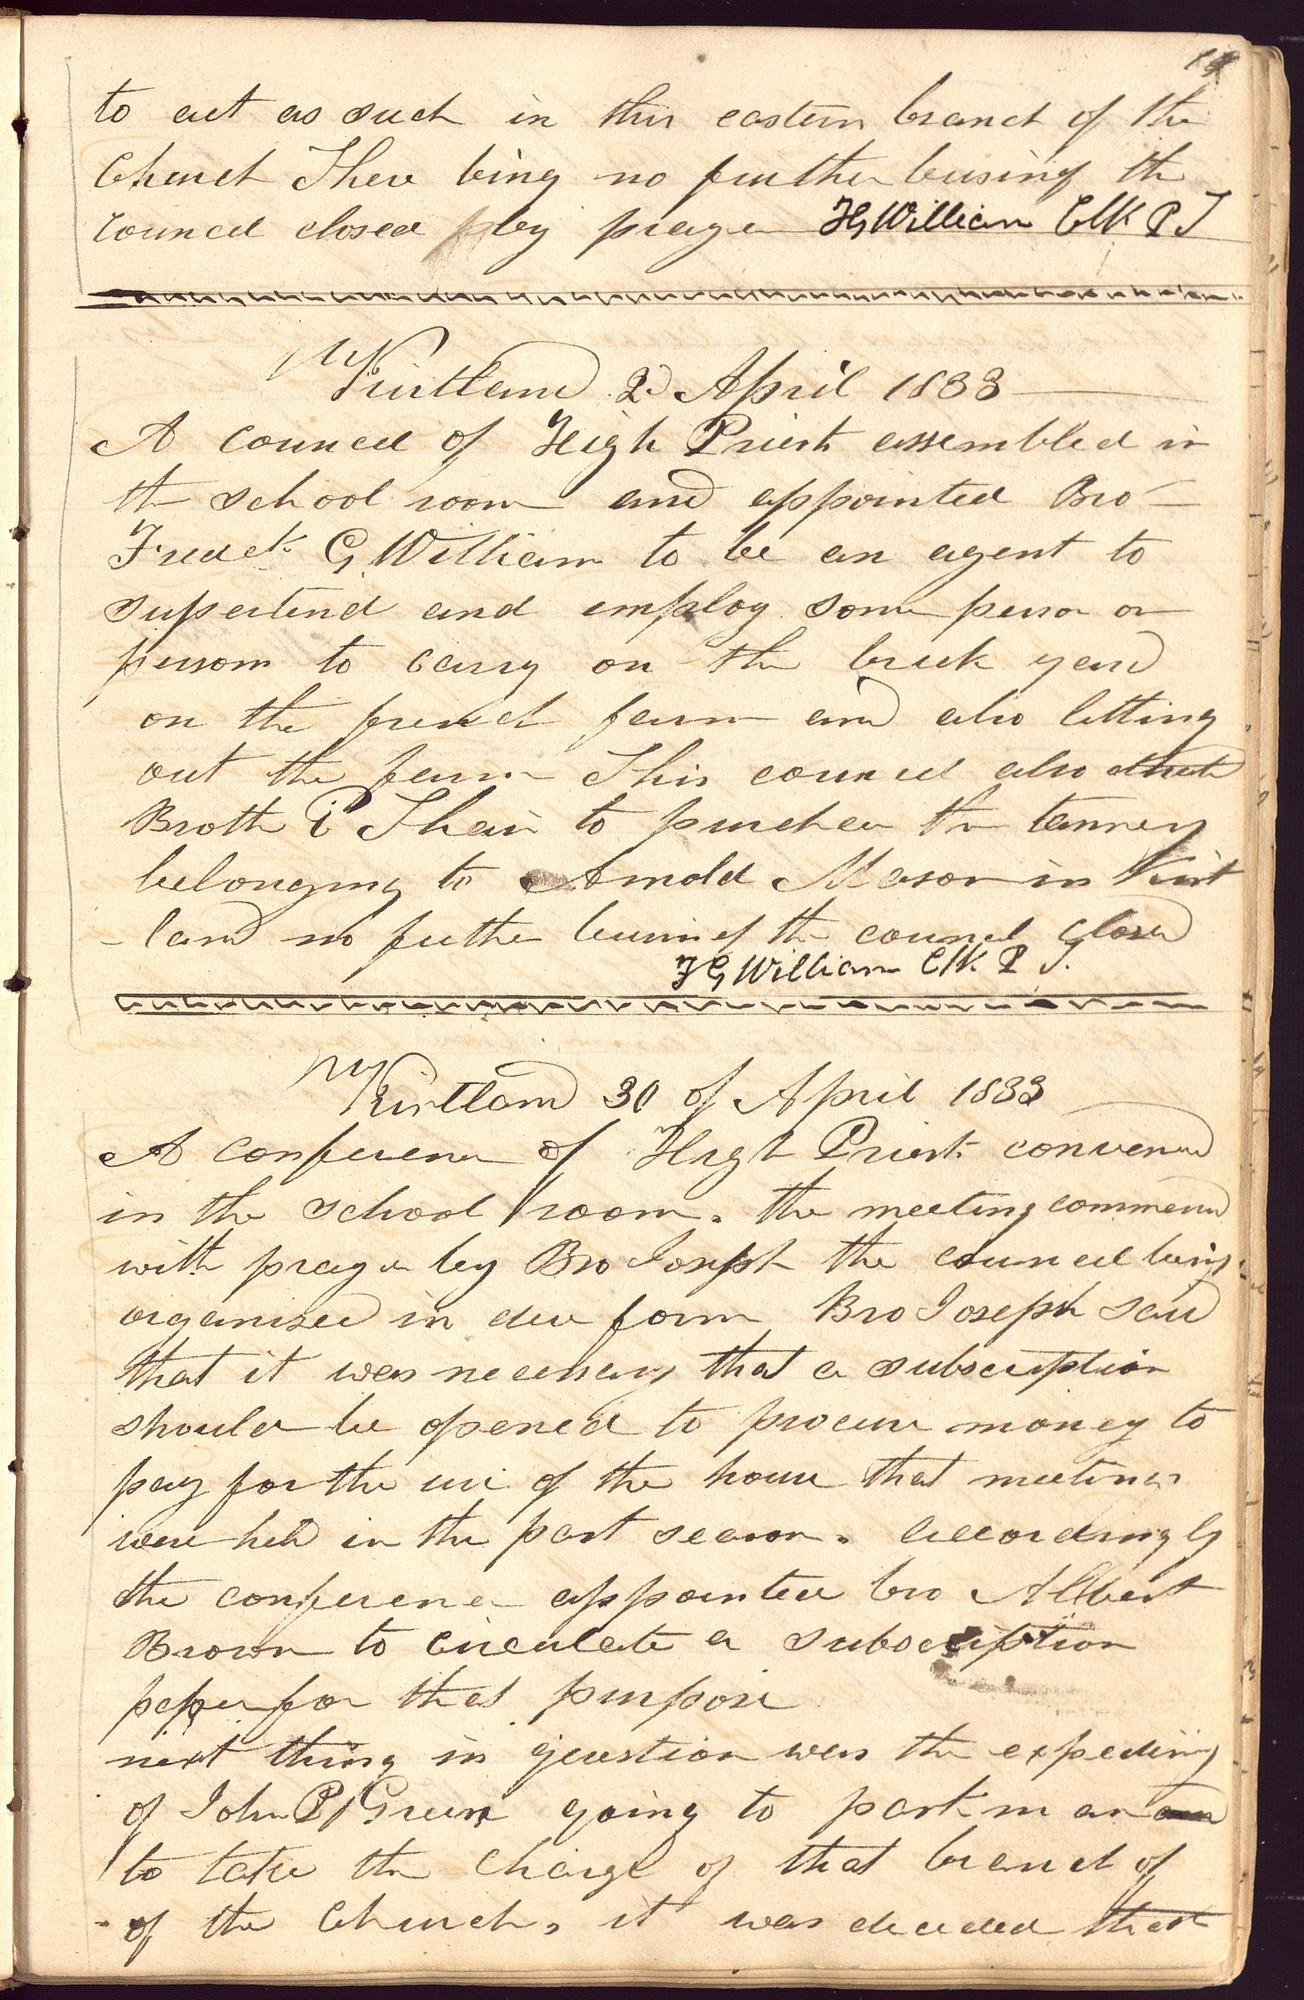 to act as such in this eastern branch of the
Church There being no further busing the
council closed by prayer FG William Clk P T
Kirtland 2d April 1833
A council of High Priest assembled in
th school room and appointed Bro
Fredck G William to be an agent to
supertend and employ some person or
persom to carry on the brick yard
on the french farm and also letting
out the farm This council also
Broth Shair to purchase the tannery
belonging to Arnold Mason in Kirt
land no futher busines the council closed
FG William Clk P T.
Kirtland 30 of April 1833
A conference of High Priest convened
in the school room. the meeting commencd
with prayer by Bro Joseph the council being
organized in due form Bro Joseph said
that it was necessary that a subscription
should be opened to procure money to
pay for the use of the house that meetings
were held in the past season. accordingly
the conference appointed bro Albert
Brown to circulate a subscription
paper for that purpose
next thing in question was the expediency
of John P Green going to
to take the charge of that branch of
of the Church, it was decided that